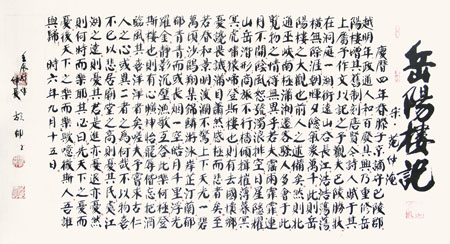 岳陽樓記
宋 范仲淹
慶曆四年春滕子京謫守巴陵郡
越明年政通人和百廢具興乃重修岳
陽樓增其舊制刻唐賢今人詩賦于其
上屬予作文以記之予觀夫巴陵勝狀
在洞庭一湖銜遠山吞長江浩浩蕩蕩
橫無際涯朝暉夕陰氣象萬千此則岳
陽樓之大觀也前人之述備矣然則北
通巫峽南極瀟湘遷客騷人多會于此
覽物之情得無異乎若夫霪雨霏霏連
月不開陰風怒號濁浪排空日星隱耀
山岳潛形商旅不行檣傾楫摧薄暮冥
冥虎嘯猿啼登斯樓也則有去國懷鄉
憂讒畏譏滿目蕭然感極而悲者矣至
若春和景明波瀾不驚上下天光一碧
萬頃沙鷗翔集錦鱗游泳岸芷汀蘭郁
郁青青而或長煙一空皓月千里浮光
耀金靜影沉璧漁歌互答此樂何極登
斯樓也則有心曠神怡寵辱皆忘把酒
臨風其喜洋洋者矣嗟夫予嘗求古仁
人之心或異二者之為何哉不以物喜
不以己悲居廟堂之高則憂其民處江
湖之遠則憂其君是進亦憂退亦憂然
則何時而樂耶其必曰先天下之憂而
憂後天下之樂而樂歟噫微斯人吾誰
與歸 時六年九月十五日